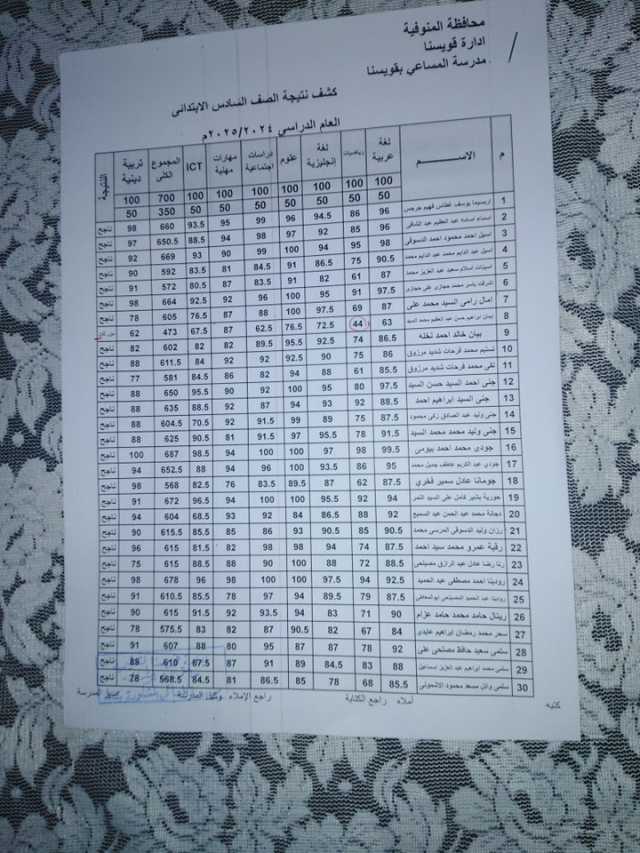 محافظة المنوفية
ادارة قويسنا
مدرسة المساعي بقويسنا
كشف نتيجة الصف السادس الابتدائى
العام الدراسي ٢٠٢٥/٢٠٢٤م
م الاســـــــــم لغة عربية رياضيات لغة إنجليزية علوم دراسات اجتماعية مهارات مهنية ICT المجموع الكلى تربية دينية النتيجة
100 100 100 100 100 100 100 700 100
50 50 50 50 50 50 50 350 50
1 يوسف فهيم جرجس 96 86 94.5 96 99 95 93.5 660 98 ناجح
2 عبد العظيم عبد 96 85 92 97 98 94 88.5 650.5 97 ناجح
3 اسيل احمد محمود احمد الدسوقى 98 95 94 100 99 90 93 669 92 ناجح
4 اسيل عبد الدايم محمد عبد الدايم محمد 90.5 75 86.5 91 84.5 81 83.5 592 90 ناجح
5 اسلام سعيد عبد العزيز محمد 87 61 82 91 83.5 87 80.5 572 91 ناجح
6 ياسر محمد حجازى على حجازى 97.5 91 95 100 96 92 92.5 664 98 ناجح
7 امال رامى السيد محمد على 87 69 97.5 100 88 87 76.5 605 78 ناجح
8 بيان ابراهيم حسن عبد العظيم محمد السيد 63 44 72.5 76.5 62.5 87 67.5 473 62
9 بيان خالد احمد نخله 86.5 74 92.5 95.5 89.5 82 82 602 82 ناجح
10 تسنيم محمد فرحات شديد مرزوق 86 75 90 92.5 92 92 84 611.5 88 ناجح
11 تقى محمد فرحات شديد مرزوق 85.5 61 88 94 82 86 84.5 581 77 ناجح
12 جنى احمد السيد حسن السيد 97.5 80 95 100 92 90 95.5 650 88 ناجح
13 جنى السيد ابراهيم احمد 88.5 92 93 94 87 92 88.5 635 88 ناجح
14 جنى وليد عبد الصادق زكى محمود 87.5 75 89 99 91.5 92 70.5 604.5 88 ناجح
15 جنى وليد محمد محمد السيد 91.5 78 95.5 97 91.5 81 90.5 625 88 ناجح
16 جودى محمد احمد بيومى 99.5 98 97 100 100 94 98.5 687 100 ناجح
17 جودي عبد الكريم عاطف جميل محمد 95 86 93.5 100 96 94 88 652.5 94 ناجح
18 جومانا عادل سمير فخري 87.5 62 87 89.5 83.5 76 82.5 568 98 ناجح
19 حورية بشير كامل على السيد النمر 94 92 95.5 100 100 94 96.5 672 91 ناجح
20 دجانة محمد عبد الرحمن عبد السميع 92 88 86.5 84 92 93 68.5 604 94 ناجح
21 رزان وليد الدسوقى المرسى محمد 90.5 85 90.5 93 85 86 85.5 615.5 90 ناجح
22 رقية عمرو محمد سيد احمد 87.5 74 94 98 98 82 81.5 615 96 ناجح
23 رنا رضا عادل عبد الرازق مصيلحى 88.5 72 88 100 90 88 88.5 615 75 ناجح
24 رودينا احمد مصطفى عبد الحميد 92.5 94 97.5 100 100 98 96 678 98 ناجح
25 رودينا عبد الحميد ابو 87.5 79 89.5 94 97 78 85.5 610.5 91 ناجح
26 ريتال حامد محمد حامد عزام 90 71 83 94 93.5 92 91.5 615 90 ناجح
27 سحر محمد رمضان ابراهيم عابدى 84 67 82 90.5 87 82 83 575.5 78 ناجح
28 سلمى سعيد حافظ مصلحى على 92 78 87 87 95 88 80 607 91 ناجح
29 سلمى محمد ابراهيم عبد العزيز اسماعيل 88 83 84.5 89 91 87 87.5 610 89 ناجح
30 سلمى وائل مسعد محمود 85.5 68 78 85 86.5 81 84.5 568.5 78 ناجح
كتبه أملاه راجع الكتابة راجع الإملاء